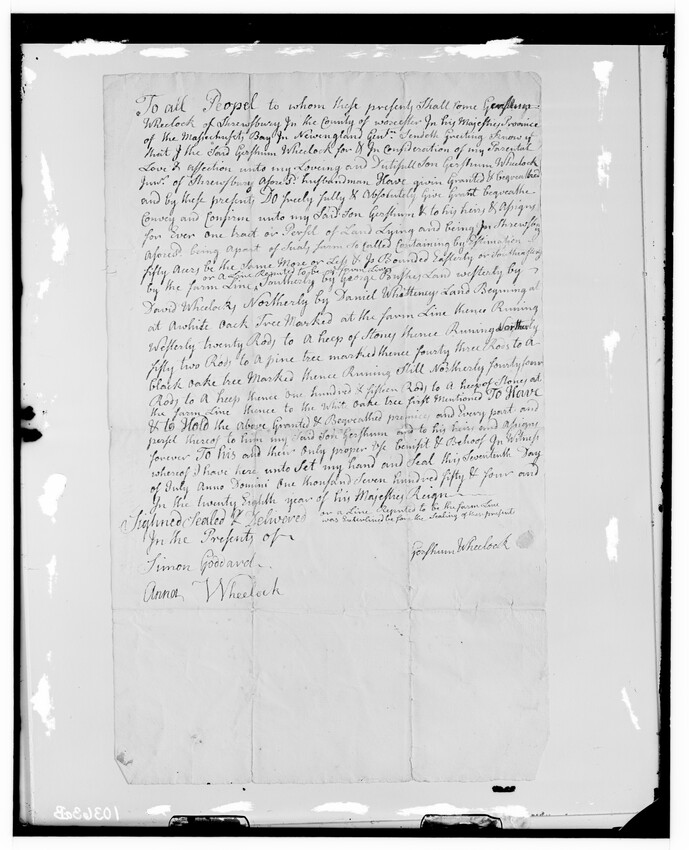 To all Peopel to whom these presents Shall come Gershum
Wheelock of Shrewsbury In the County of worcester In his Majestyes Province
of the Massachusets Bay In Newengland Gentn. Sendeth Greeting Know ye
that I the Said Gershum Wheelock for & In Consideration of my Parental
Love & affection unto my Loveing and Dutifull Son Gershum Wheelock
Junr. of Shrewsbury Aforsd. husbandman Have givin Granted & beqveathed
and by these presents Do freely fully & Absolutely Give Grant beqveathe
Convey and Confirm unto my Said Son Gershum & to his heirs & Assigns
for Ever one tract or Persel of Land Lying and being In Shrewsbury
Aforesd being apart of farm So Called Containing by Estimation
fifty Acers be the Same More or Less & Is Bounded Easterly or Southeasterly
or A Line Reputed to be the farm Line
by the farm Line, Southerly by George Land westerly by
David Wheelocks Northerly by Daniel Whitteneys Land Begining at
at Awhite oack Tree Marked at the farm Line thence Runing
Westerly twenty Rods to A heep of Stones thence Runing Northerly
fifty two Rods to A pine tree marked thence fourty three Rods to A
black oake tree Marked thence Runing Still Northerly fourty four
Rods to A heep thence one hundred & fifteen Rods to A heep of Stones at
the farm Line thence to the Whit oake tree first Mentioned To Have
& to Hold the above Granted & Beqveathed premices and Every part and
persel thereof to him my Said Son Gershum and to his heirs and Assigns
forever To his and their Only proper Use benifit & Behoof In Witness
whereof I have here unto Set my hand and Seal this Seventeenth Day
of July Anno Domini One thousand Seven hundred fifty & four and
In the twenty Eighth year of his Majestyes Reign
Signed Sealed & Delivered
or a Line Reputed to be the farm Line
was Enterlined before the Sealing of these presents
In the Presents of
Gershum Wheelock
Simon Goddard
Anna Wheelock
10363B